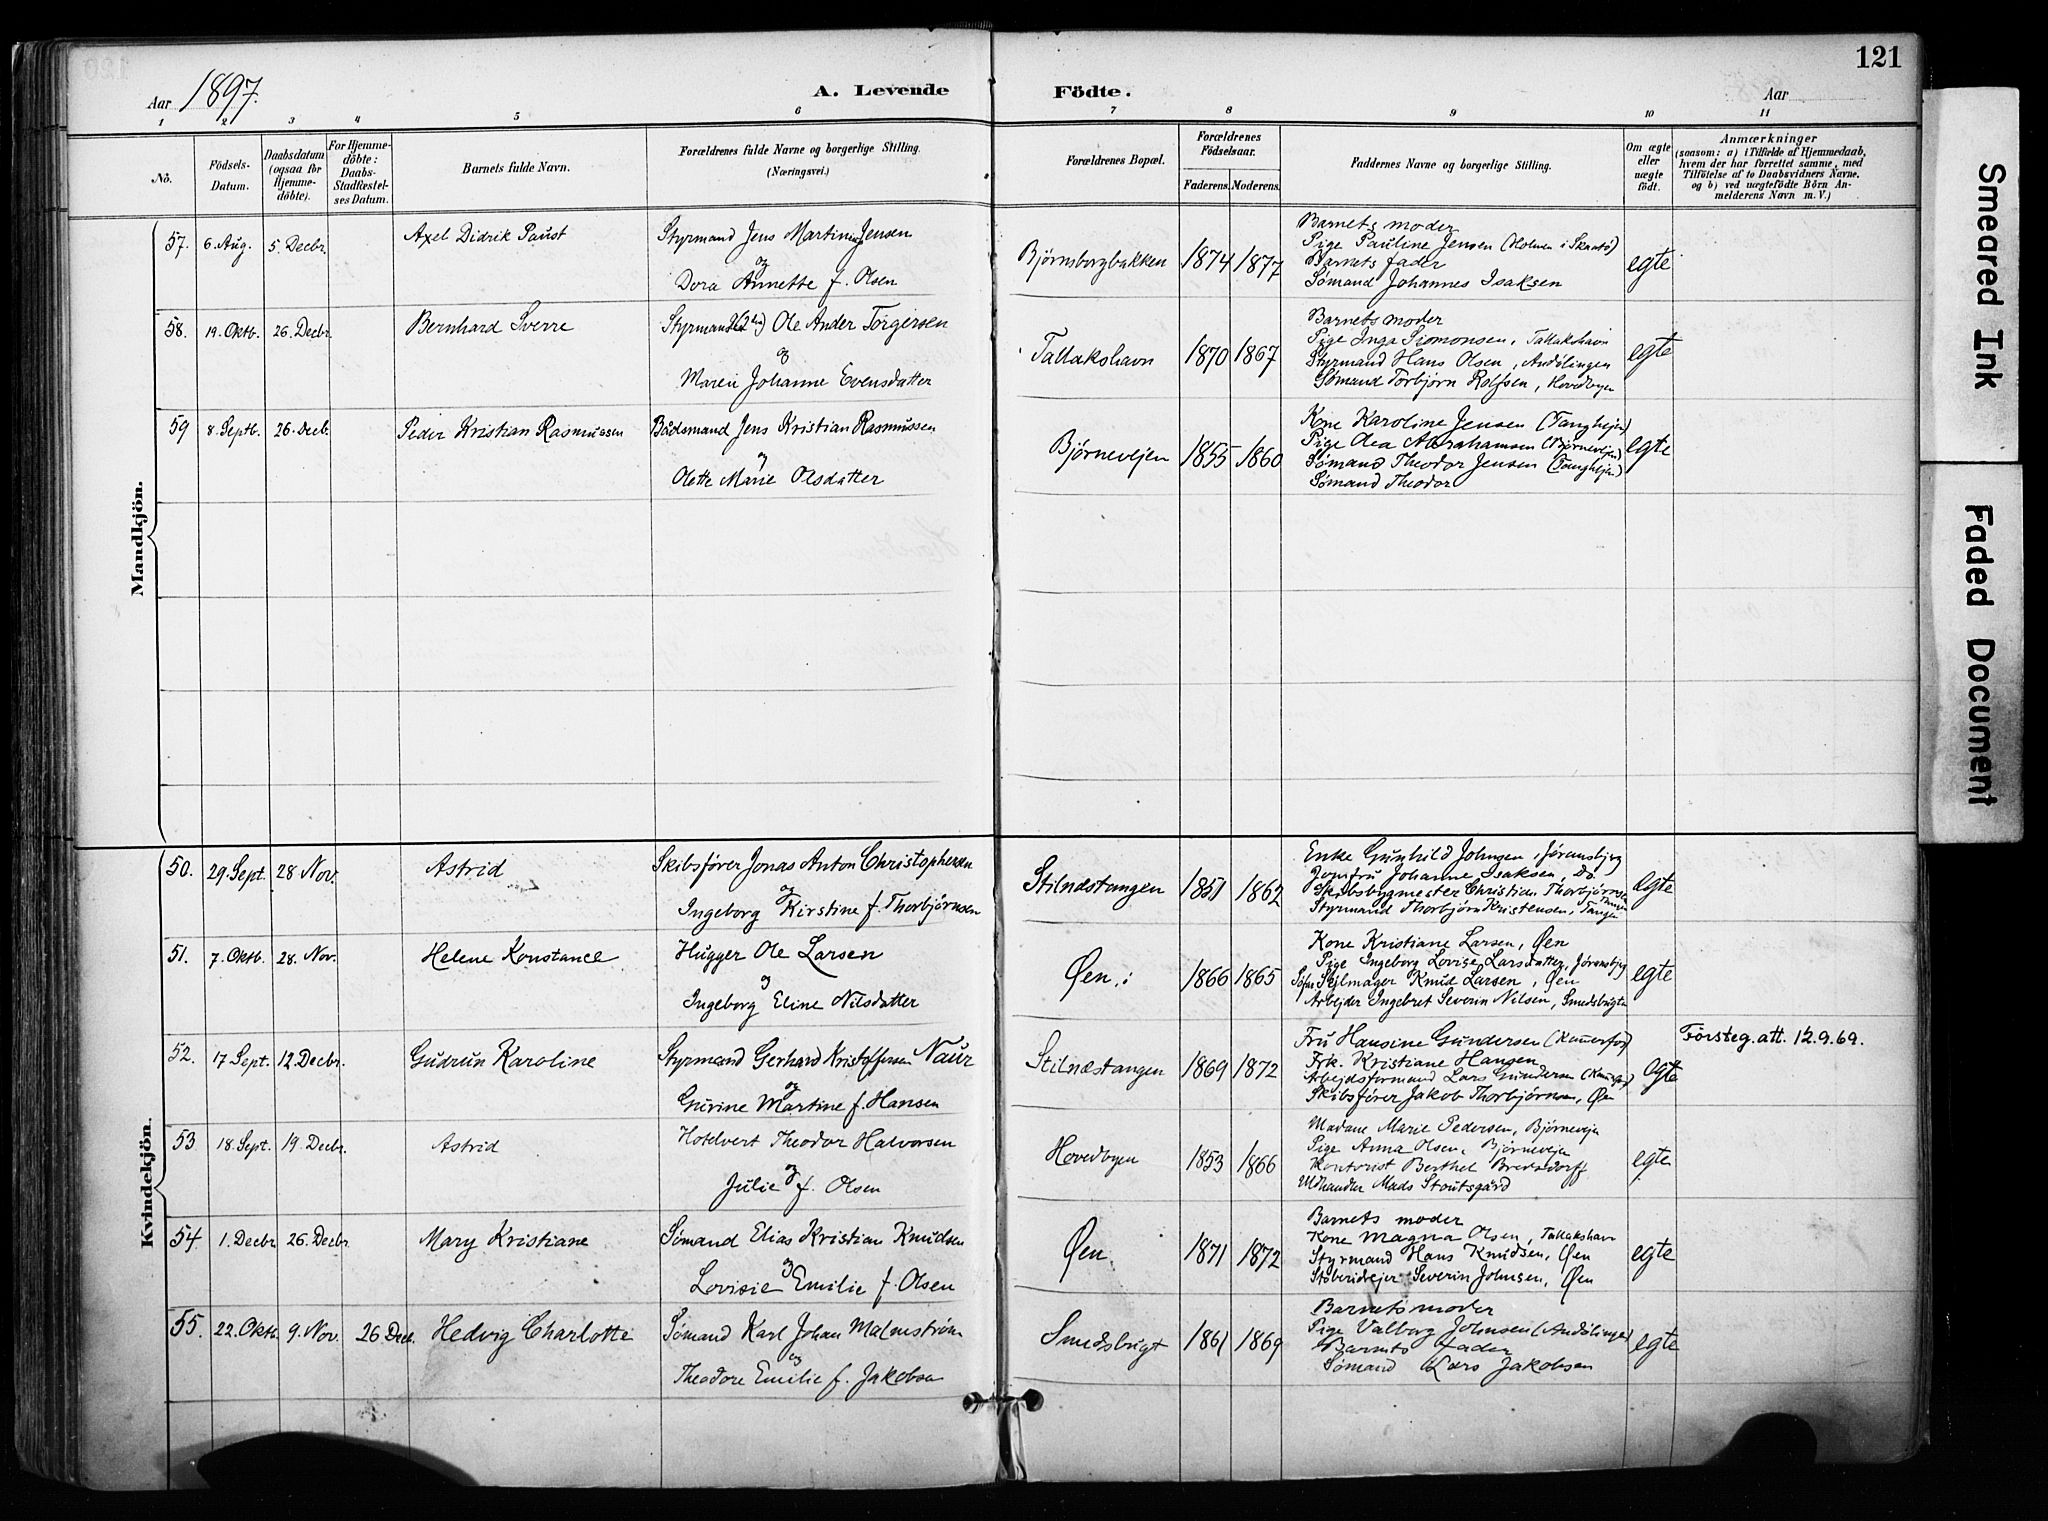 121
Aar 1897.
A. Levende Födte.
Aar
1 2 3 4 5 6 7 8 9 10 11
No.
Födsels-Datum.
Daabsdatum (ogsaa for Hjemmedöbte).
For Hjemmedöbte: Daabs-Stadfæstelses Datum.
Barnets fulde Navn.
Forældrenes fulde Navne og borgerlige Stilling.
(Næringsvei.)
Forældrenes Bopæl.
Forældrenes Födselsaar.
Faderens. Moderens.
Faddernes Navne og borgerlige Stilling.
Om ægte eller uægte födt.
Anmærkninger
(saasom: a) i Tilfælde af Hjemmedaab, hvem der har forrettet samme, med Tilföielse af to Daabsvidners Navne. og b) ved uægtefödte Börn Anmelderens Navn m. V.)
Mandkjön.
57. 6 Aug. 5. Decbr. Axel Didrik Paust
Styrmand Jens Martin Jensen
og
Dora Annette f. Olsen
Bjørnsborgbakken 1874 1877
Barnets moder
Pige Pauline Jensen (Holmen i Skaatø)
Barnets fader
Sømand Johannes Isaksen
egte
58. 19. Oktb. 26. Decbr. Bernhard Sverre
Styrmand Ole Ander Torgersen
og
Maren Johanne Evensdatter
Tallakshavn 1870 1867
Barnets moder
Pige Inga Simonsen, Tallakshavn
Styrmand Hans Olsen, Andølingen
Sømand Torbjørn Rolfsen, Hovedbyen
egte
59 8. Septb. 26. Decb. Peder Kristian Rasmussen
Bådsmand Jens Kristian Rasmussen
og
Olette Marie Olsdatter
Bjørnevejen 1855 1860
Kone Karoline Jensen (Tanghejen)
Pige Olea Abrahamsen (Bjørnevejen)
Sømand Theodor Jensen (Tanghejen)
Sømand Theodor
egte
Kvindekjön.
50. 29. Sept. 28 Nov. Astrid
Skibsfører Jonas Anton Christophersen
og
Ingeborg Kirstine f. Thorbjørnsen
Stilnæstangen 1851 1862
Enke Gunhild Johnsen, Jøransbjerg
Jomfru Johanne Isaksen, Do.
Skibsbygmester Christian Thorbjørnsen
Styrmand Thorbjørn Kristensen, Tangen
egte
51. 7. Oktb. 28. Nov. Helene Konstance
Hugger Ole Larsen
og
Ingeborg Eline Nilsdatter
Øen 1866 1865
Kone Kristiane Larsen, Øen
Pige Ingeborg Lovise Larsdatter, Jøransbjg
Sejlmager Knud Larsen, Øen
Arbejder Ingebret Severin Nilsen, Smedsbugten
egte
52. 17 Sept. 12 Decbr. Gudrun Karoline
Styrmand Gerhard Kristoffersen Naur
og
Gurine Martine f. Hansen
Stilnæstangen 1869 1872
Fru Hansine Gundersen
Frk. Kristiane Hansen
Arbejdsformand Lars Gundersen
Skibsfører Jakob Thorbjørnsen, Øen
egte
Førsteg. att. 12.9.69.
53 18. Sept. 19. Decbr. Astrid
Hotelvert Theodor Halvorsen
og
Julie f. Olsen
Hovedbyen 1853 1866
Madame Marie Pedersen, Bjørnevejen
Pige Anna Olsen, Bjørnevejen
Kontorist Berthel Brevsdorff
Uldhandler Mads Stoutsgård
egte
54. 1. Decbr. 26. Decbr. Mary Kristiane
Sømand Elias Kristian Knudsen
og
Lovisie Emilie f. Olsen
Øen 1871 1872
Barnets moder
Kone Magna Olsen, Tallakshavn
Styrmand Hans Knudsen, Øen
Støberidrejer Severin Johnsen, Øen
egte
55. 22. Oktb. 9. Nov. 26 Decb. Hedvig Charlotte
Sømand Karl Johan Malmstrøm
og
Theodore Emilie f. Jakobsen
Smedsbugt 1861 1869
Barnets moder
Pige Valborg Johnsen (Andølingen)
Barnets Fader
Sømand Lars Jakobsen
egte
Smeared Ink
Faded Document